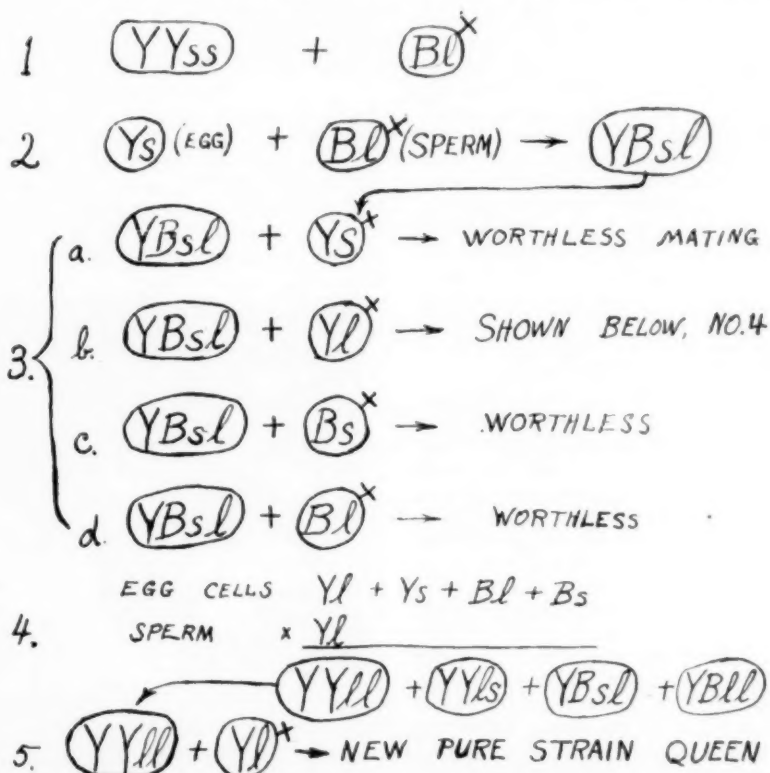 1 YYss + Bl x
2 Ys (EGG) + Bl x (SPERM) → YBsl
3. a. YBsl + Ys x → WORTHLESS MATING
b. YBsl + Yl x → SHOWN BELOW, NO.4
c. YBsl + Bs x → WORTHLESS
d. YBsl + Bl x → WORTHLESS
EGG CELLS Yl + Ys + Bl + Bs
4. SPERM x Yl
YYll + YYls + YBsl + YBll
5. YYll + Yl x → NEW PURE STRAIN QUEEN